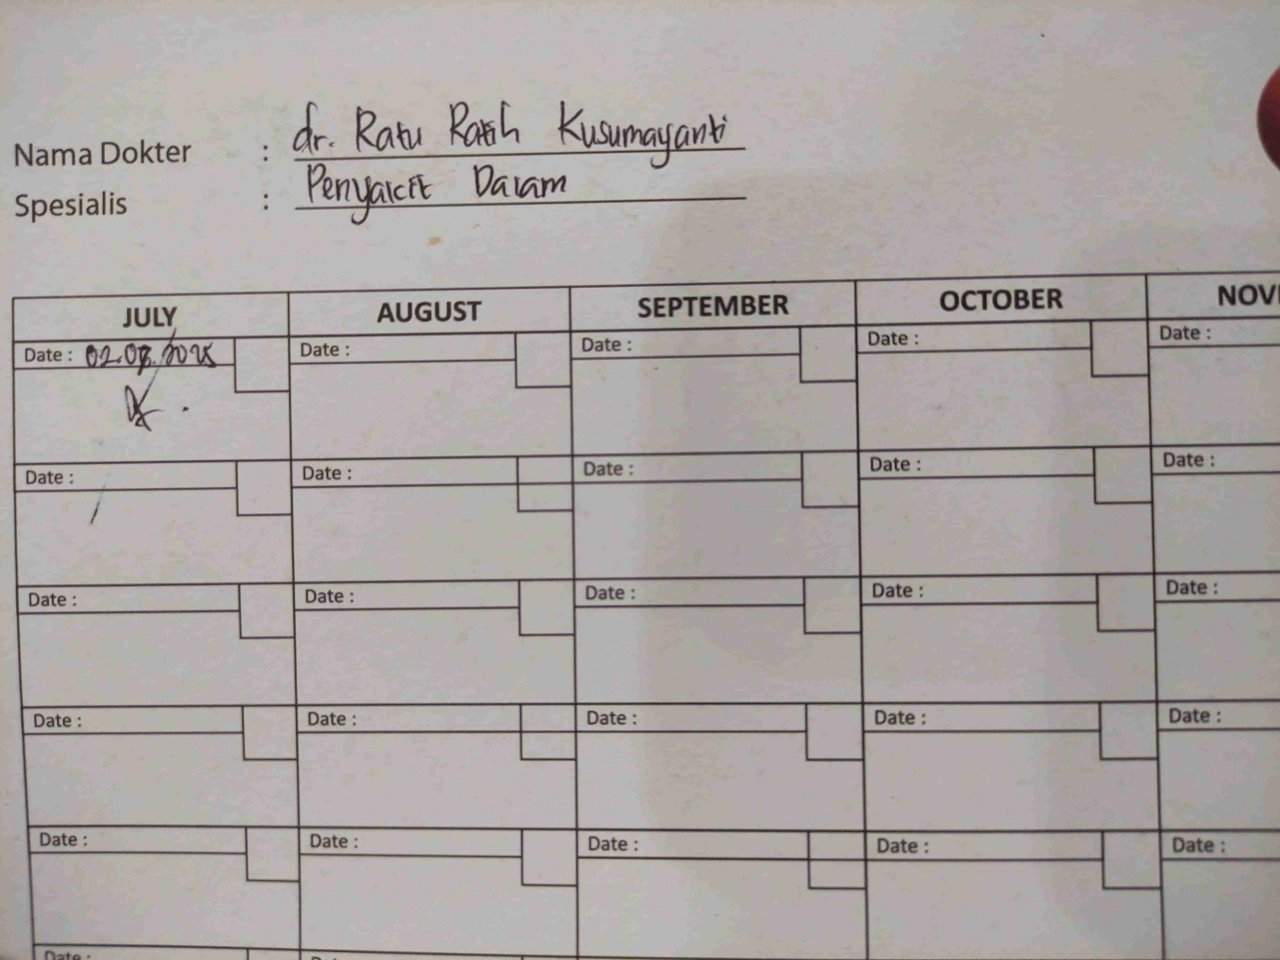 Nama Dokter : dr. Ratu Ratih Kusumayanti
Spesialis : Penyakit Dalam
JULY AUGUST SEPTEMBER OCTOBER NOV
Date : 02.07.2025 Date : Date : Date : Date :
Date : Date : Date : Date : Date :
Date : Date : Date : Date : Date :
Date : Date : Date : Date : Date :
Date : Date : Date : Date : Date :
Date :